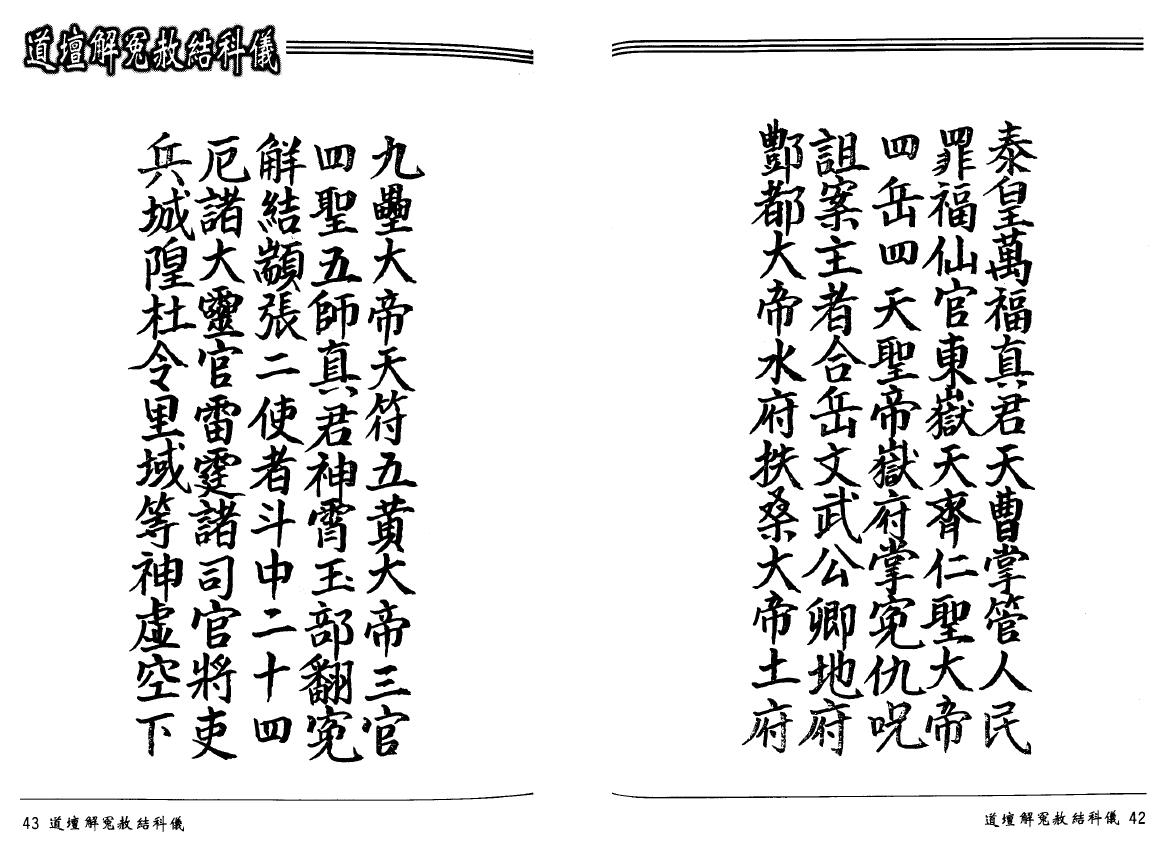 泰皇萬福真君天曹掌管人民
罪福仙官東嶽天齊仁聖大帝
四岳四天聖帝嶽府掌冤仇呪
詛案主者合岳文武公卿地府
酆都大帝水府扶桑大帝土府
道壇解冤赦結科儀 42
道壇解冤赦結科儀
九壘大帝天符五黃大帝三官
四聖五師真君神霄玉部翻冤
解結顓張二使者斗中二十四
厄諸大靈官雷霆諸司官將吏
兵城隍杜令里域等神虛空下
43 道壇解冤赦結科儀